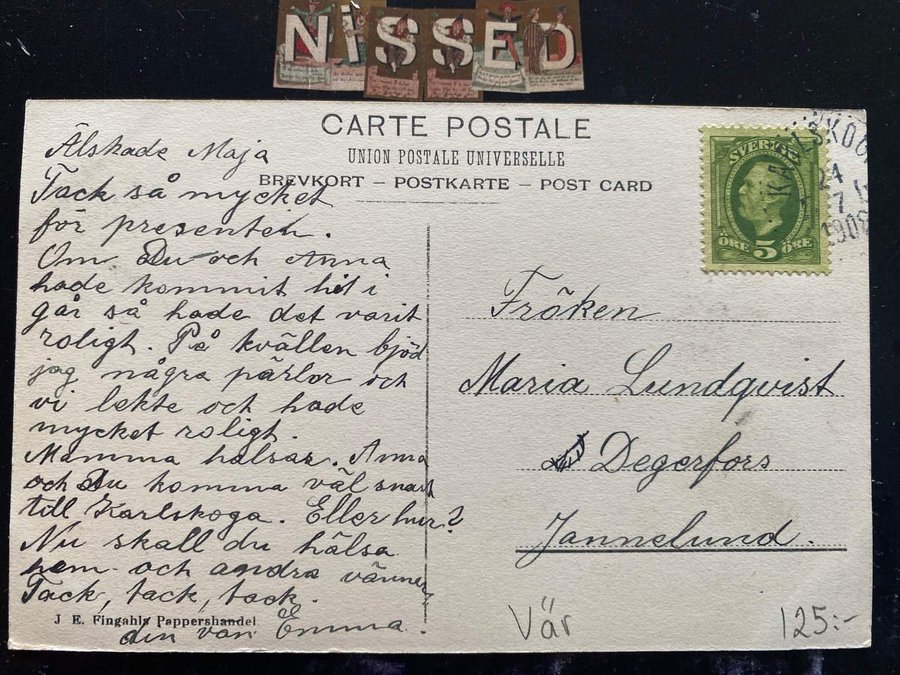 NISSED
CARTE POSTALE
UNION POSTALE UNIVERSELLE
BREVKORT – POSTKARTE – POST CARD
Älskade Maja
Tack så mycket
för presenten.
Om Du och Anna
hade kommit hit i
går så hade det varit
roligt. På kvällen bjöd
jag några pärlor och
vi lekte och hade
mycket roligt.
Mamma hälsar. Anna
och Du komma väl snart
till Karlskoga. Eller hur?
Nu skall du hälsa
hem och andra vänner
Tack, tack, tack.
J. E. Fingahls Pappershandel
din vän Emma.
SVERIGE
ÖRE 5 ÖRE
KARLSKOGA
24
7
1908
Fröken
Maria Lundqvist
Degerfors
Jannelund.
Vär
125:-